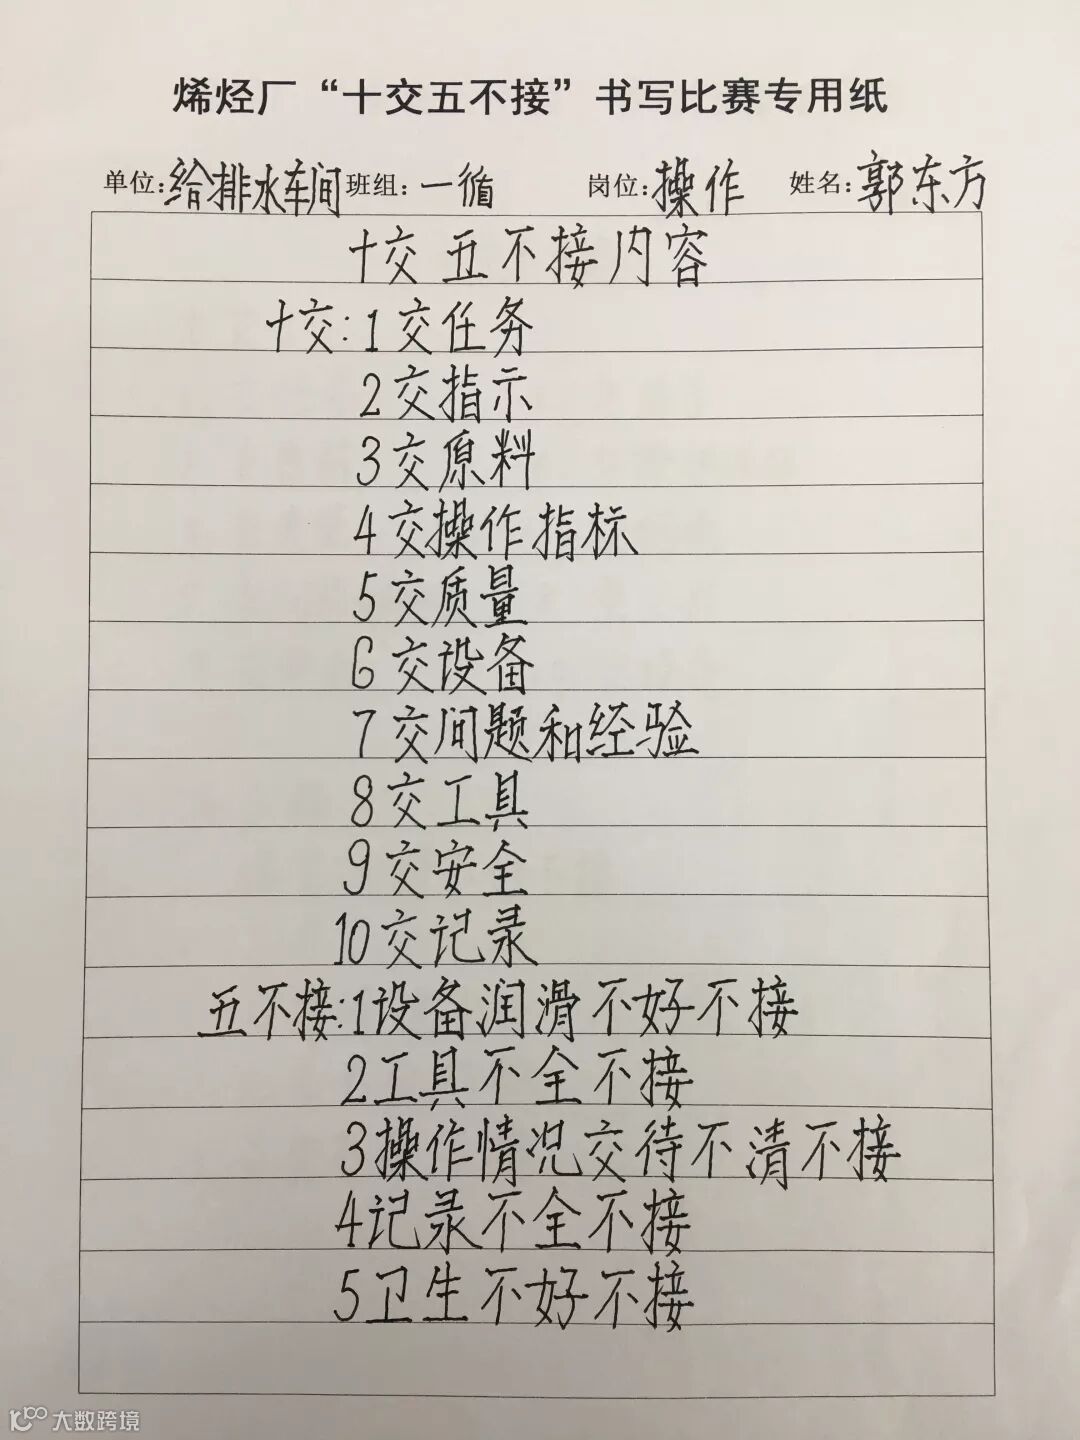 烯烃厂“十交五不接”书写比赛专用纸
单位:给排水车间 班组:一循 岗位:操作 姓名:郭东方
十交五不接内容
十交:1交任务
2交指示
3交原料
4交操作指标
5交质量
6交设备
7交问题和经验
8交工具
9交安全
10交记录
五不接:1设备润滑不好不接
2工具不全不接
3操作情况交待不清不接
4记录不全不接
5卫生不好不接
大数跨境